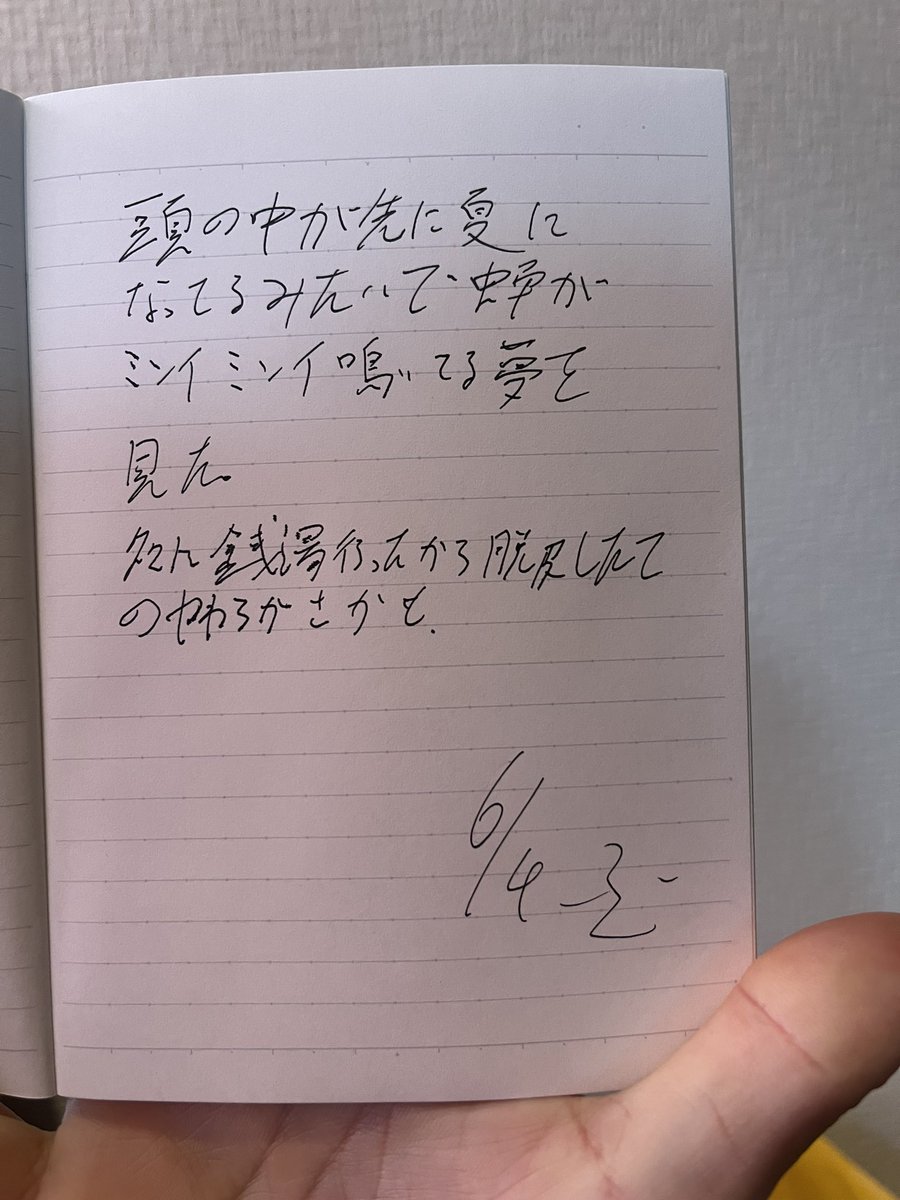 頭の中が先に夏に
なってるみたいで蝉が
ミンイミンイ鳴いてる夢を
見た。
銭湯行ったから脱皮したて
のやわらかさかも.
6/4